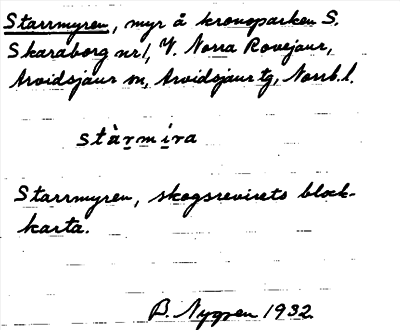 Starrmyren, myr å kronoparken S.
Skaraborg nr 1, V. Norra Rovejaur,
Arvidsjaur sn, Arvidsjaur tg, Norrb. l.
stàrmíra
Starrmyren, skogsrevirets block-
karta.
B. Nygren 1932.